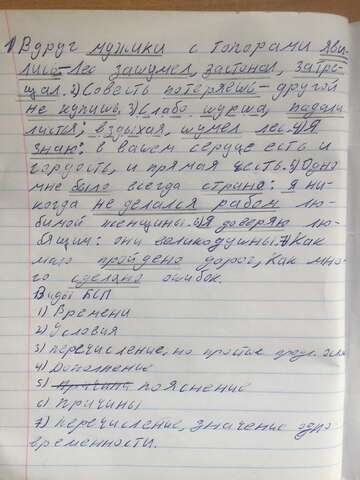 1) Вдруг мужики с топорами яви-
лись - лес зашумел, застонал, затре-
щал. 2) Совесть потеряешь - другой
не купишь. 3) Слабо шурша, падали
листья; вздыхая, шумел лес. 4) Я
знаю: в вашем сердце есть и
гордость, и прямая честь. 5) Одно
мне было всегда странно: я ни-
когда не делался рабом лю-
бимой женщины. 6) Я доверяю лю-
бящим: они великодушны. 7) Как
мало пройдено дорог, как мно-
го сделано ошибок.
Виды БСП
1) Времени
2) Условия
3) перечисление, но простые
4) Дополнение
5) Причина пояснение
6) Причины
7) перечисление, значение одно-
временности.